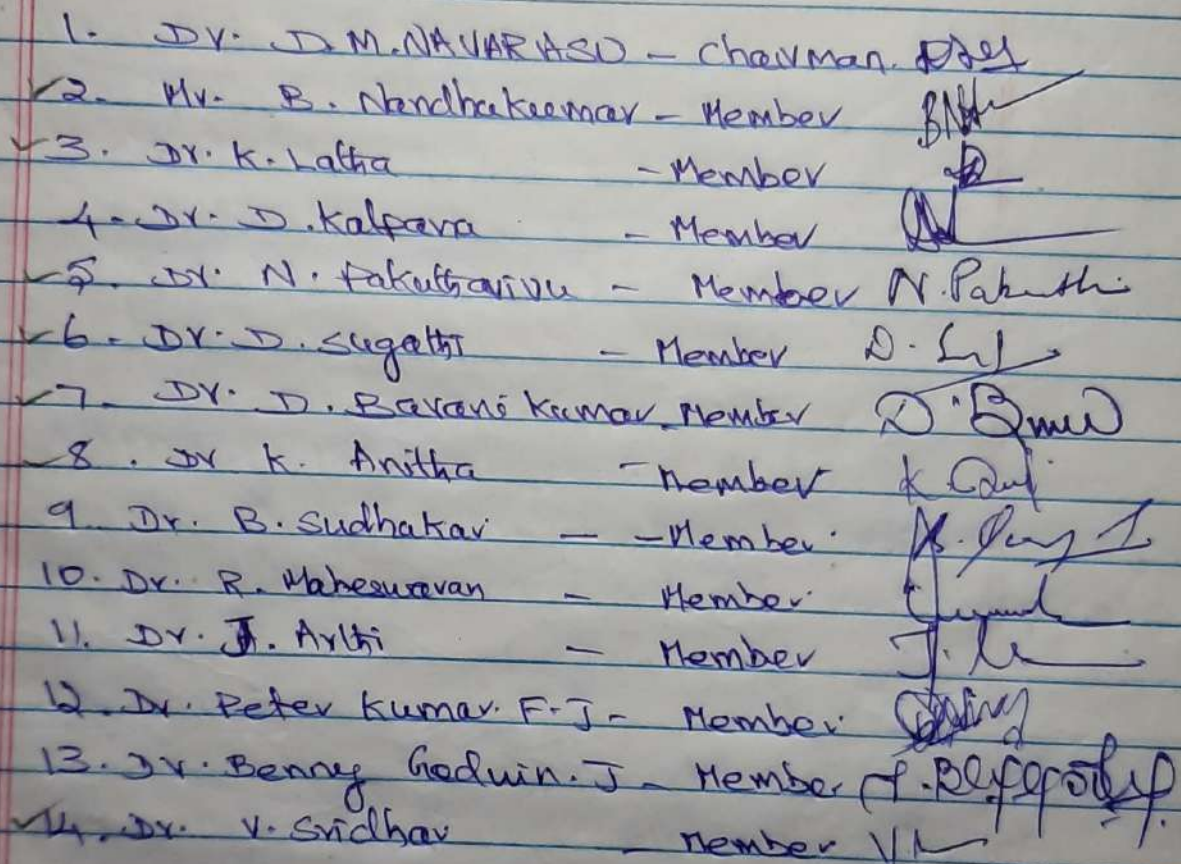 1. Dr. D.M. NAVARASU - Chairman.
2. Mr. B. Nandhakumar - Member
3. Dr. K. Latha - Member
4. Dr. D. Kalpana - Member
5. Dr. N. Pakutharivu - Member N. Pakuthi
6. Dr. D. Sugathi - Member
7. Dr. D. Barani Kumar - Member
8. Dr K. Anitha - Member
9. Dr. B. Sudhakar - - Member
10. Dr. R. Maheswaran - Member
11. Dr. J. Arthi - Member
12. Dr. Peter Kumar. F.J - Member
13. Dr. Benny Godwin. J - Member
14. Dr. V. Sridhar - Member